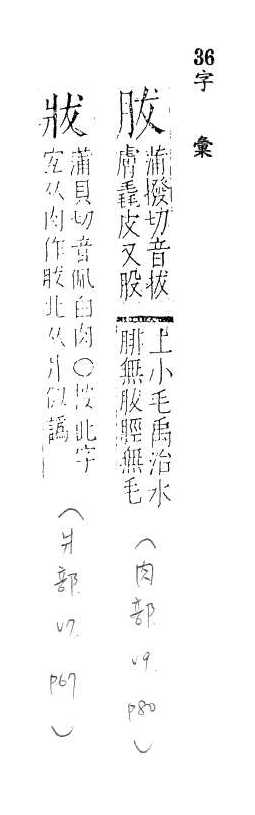 36字彙
胈
蒲撥切音拔
膚毳皮又股
上小毛禹治水
腓無胈脛無毛
(肉部 v9. p80)
蒲貝切音佩白肉〇按此字
宜从肉作胈此从爿似譌
(爿部 v7. p67)